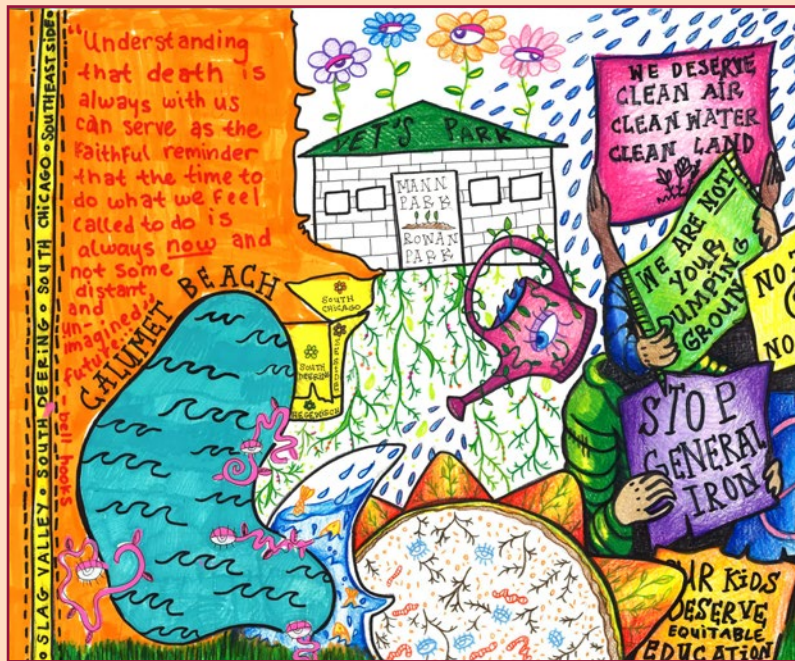 SLAG VALLEY • SOUTH DEERING • SOUTH CHICAGO • SOUTHEAST SIDE
"Understanding
that death is
always with us
can serve as the
faithful reminder
that the time to
do what we feel
called to do is
always now and
not some
distant
and
un-
imagined
future."
- bell hooks
CALUMET BEACH
VET'S PARK
MANN
PARK
ROWAN
PARK
SOUTH
CHICAGO
SOUTH
DEERING
HEGEWISCH
WE DESERVE
CLEAN AIR
CLEAN WATER
CLEAN LAND
WE ARE NOT
YOUR
DUMPING
GROUND
NO
NO
STOP
GENERAL
IRON
OUR KIDS
DESERVE
EQUITABLE
EDUCATION